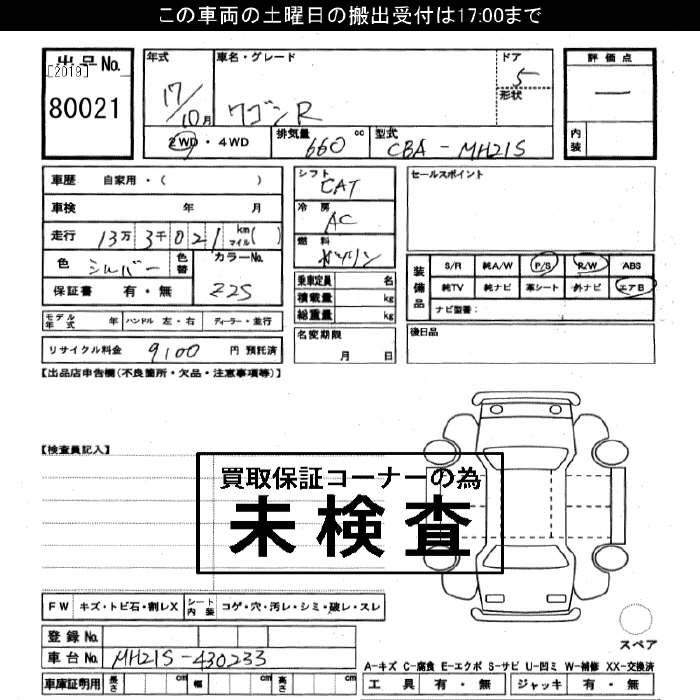 この車両の土曜日の搬出受付は17:00まで
出品No.
[2019]
80021
年式
17/10月
車名・グレード
ワゴンR
ドア
5
形状
評価点
—
内装
2WD・4WD
排気量 660 cc
型式 CBA-MH21S
車歴 自家用・( )
車検 年 月
走行 13万3千021 km マイル( )
色 シルバー
色替
カラーNo.
Z2S
保証書 有・無
シフト CAT
冷房 AC
燃料 ガソリン
乗車定員 名
積載量 kg
総重量 kg
セールスポイント
装備品
S/R 純A/W P/S R/W ABS
純TV 純ナビ 革シート 外ナビ エアB
ナビ型番:
モデル年式 年 ハンドル 左・右 ディーラー・並行
名変期限
月 日
後日品
リサイクル料金 9100 円 預託済
【出品店申告欄(不良箇所・欠品・注意事項等)】
【検査員記入】
買取保証コーナーの為
未検査
FW キズ・トビ石・割レX シート内装 コゲ・穴・汚レ・シミ・破レ・スレ
登録No.
車台No. MH21S-430233
車庫証明用 長さ cm 幅 cm 高さ cm
スペア
A-キズ C-腐食 E-エクボ S-サビ U-凹ミ W-補修 XX-交換済
工具 有・無 ジャッキ 有・無